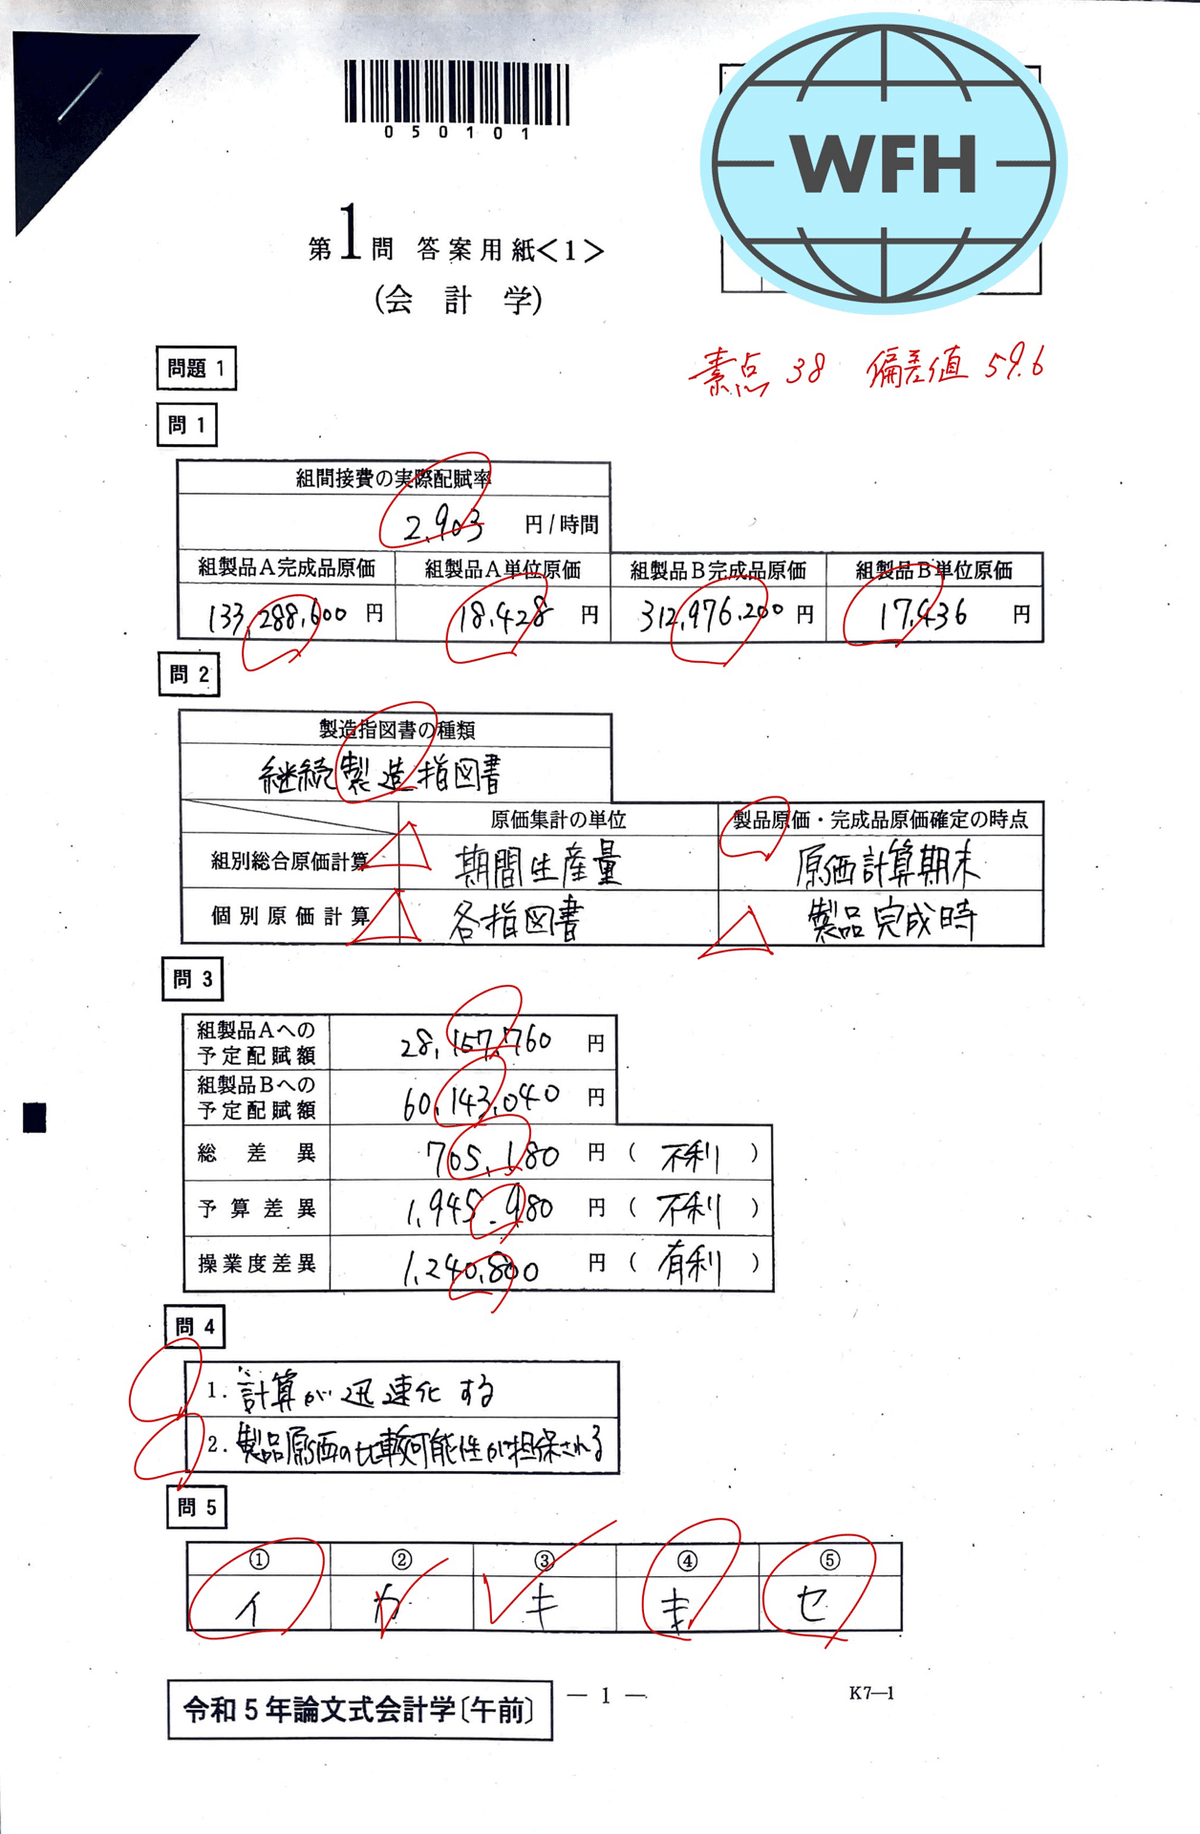 050101
WFH
第1問 答案用紙<1>
(会計学)
素点 38 偏差値 59.6
問題 1
問 1
組間接費の実際配賦率
2,903 円/時間
組製品A完成品原価 組製品A単位原価 組製品B完成品原価 組製品B単位原価
133,288,600 円 18,428 円 312,976,200 円 17,436 円
問 2
製造指図書の種類
継続製造指図書
原価集計の単位 製品原価・完成品原価確定の時点
組別総合原価計算 期間生産量 原価計算期末
個別原価計算 各指図書 製品完成時
問 3
組製品Aへの
予定配賦額 28,157,760 円
組製品Bへの
予定配賦額 60,143,040 円
総差異 705,180 円 ( 不利 )
予算差異 1,945,980 円 ( 不利 )
操業度差異 1,240,800 円 ( 有利 )
問 4
1. 計算が迅速化する
2. 製品原価の比較可能性が担保される
問 5
① ② ③ ④ ⑤
イ カ キ セ
令和5年論文式会計学〔午前〕
— 1 —
K7—1